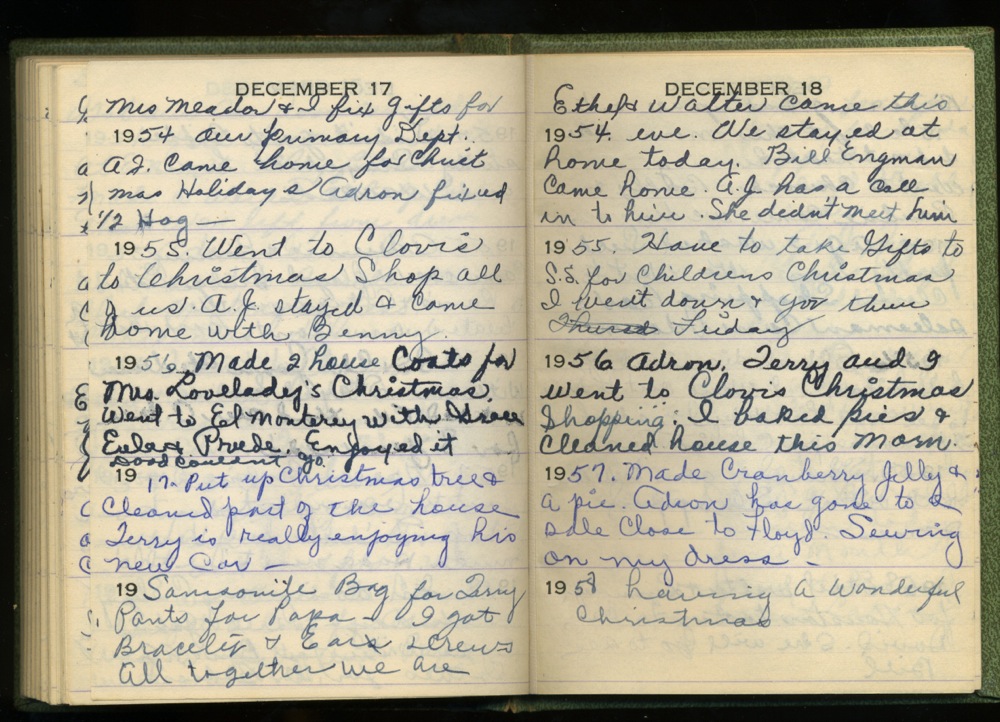 DECEMBER 17
Mrs Meador & I fix gifts for
1954 our primary Dept.
A.J. Came home for Christ
mas Holidays Adron fixed
1/2 Hog —
1955. Went to Clovis
to Christmas Shop all
of us. A.J. stayed & came
home with Benny.
1956. Made 2 house Coats for
Mrs. Lovelady's Christmas.
Went to El Monterey with
Eula & Prude. Enjoyed it
Dood Couldn't go.
19 17- Put up Christmas tree &
Cleaned part of the house
Terry is really enjoying his
new Car —
19 Samsonite Bag for Terry
Pants for Papa - I got
Bracelet & Ear screws
All together we are
DECEMBER 18
Ethel & Walter Came this
1954. eve. We stayed at
home today. Bill Engman
Came home. A.J. has a call
in to him. She didn't meet him
1955. Have to take Gifts to
S.S. for Childrens Christmas
I went down & got them
Thursd Friday
1956 Adron, Terry and I
went to Clovis Christmas
Shopping. I baked pies &
Cleaned house this Morn.
1957. Made Cranberry Jelly &
a pie. Adron has gone to a
sale Close to Floyd. Sewing
on my dress —
1958 having A Wonderful
Christmas